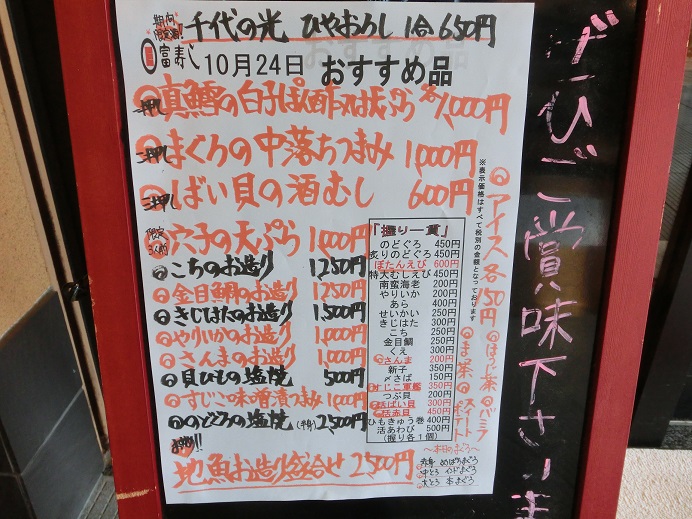 期間限定酒!
千代の光 ひやおろし 1合 650円
富寿し 10月24日 おすすめ品
一押し 真鱈の白子ぽん酢又は天ぷら 各1,000円
二押し まぐろの中落ちつまみ 1,000円
三押し ばい貝の酒むし 600円
限定 穴子の天ぷら 1,000円
こちのお造り 1,250円
金目鯛のお造り 1,250円
きじはたのお造り 1,500円
やりいかのお造り 1,000円
さんまのお造り 1,000円
貝ひもの塩焼 500円
すじこの味噌漬つまみ 1,000円
のどぐろの塩焼 (半身) 2,500円
お得!!
地魚お造り盛合せ 2500円
「握り一貫」
のどぐろ 450円
炙りのどぐろ 450円
ぼたんえび 600円
特大むしえび 450円
南蛮海老 200円
やりいか 200円
あら 400円
せいかい 250円
きじはた 300円
こち 250円
金目鯛 250円
くえ 300円
さんま 200円
新子 350円
〆さば 150円
すじこ軍艦 350円
つぶ貝 200円
活ばい貝 300円
活赤貝 450円
ひもきゅう巻 400円
活あわび 500円
(握り各1個)
※表示価格はすべて税別の金額となっております
アイス各150円
ほうじ茶
バニラ
ま茶
スイートポテト
〜本日のまぐろ〜
赤身 めばちまぐろ
中とろ インドまぐろ
大とろ 本まぐろ
ぜひご賞味下さいま